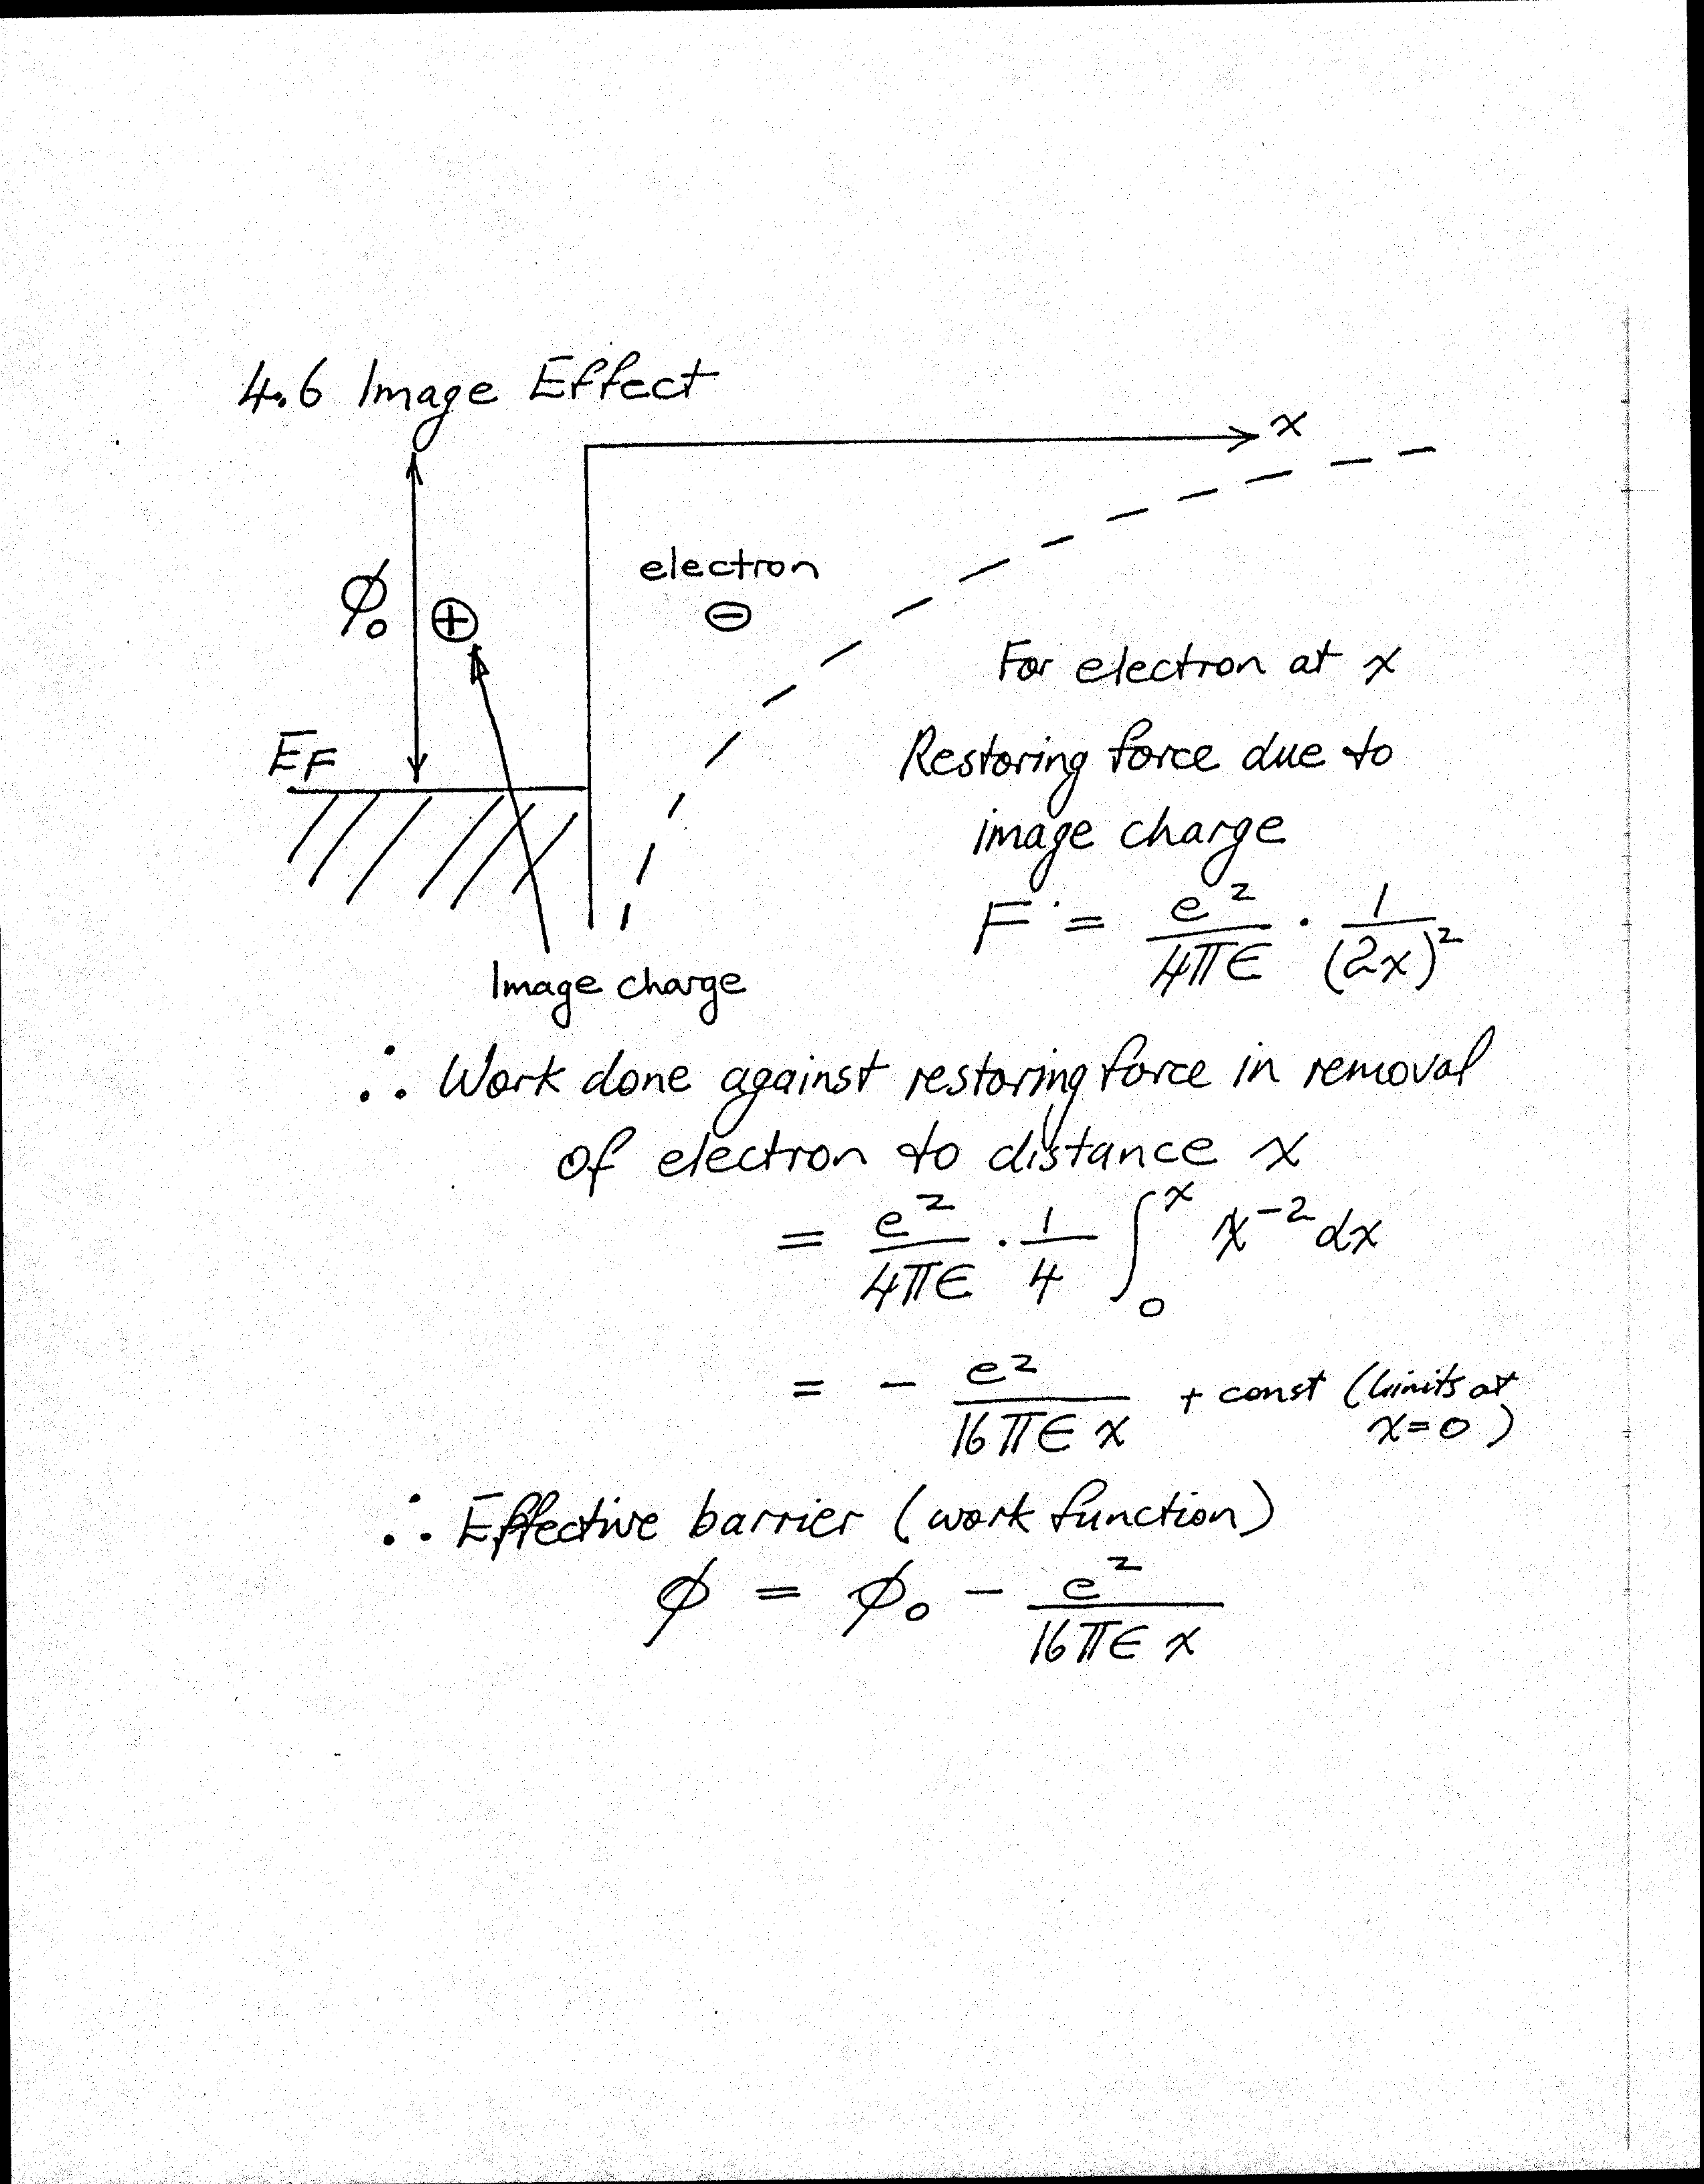 4.6 Image Effect
x
electron
φ₀ ⊕ ⊖
For electron at x
E_F
Restoring force due to
image charge
F = e²/4πϵ · 1/(2x)²
Image charge
∴ Work done against restoring force in removal
of electron to distance x
= e²/4πϵ · 1/4 ∫₀ˣ x⁻² dx
= - e²/16πϵx + const (limits at
x=0)
∴ Effective barrier (work function)
φ = φ₀ - e²/16πϵx